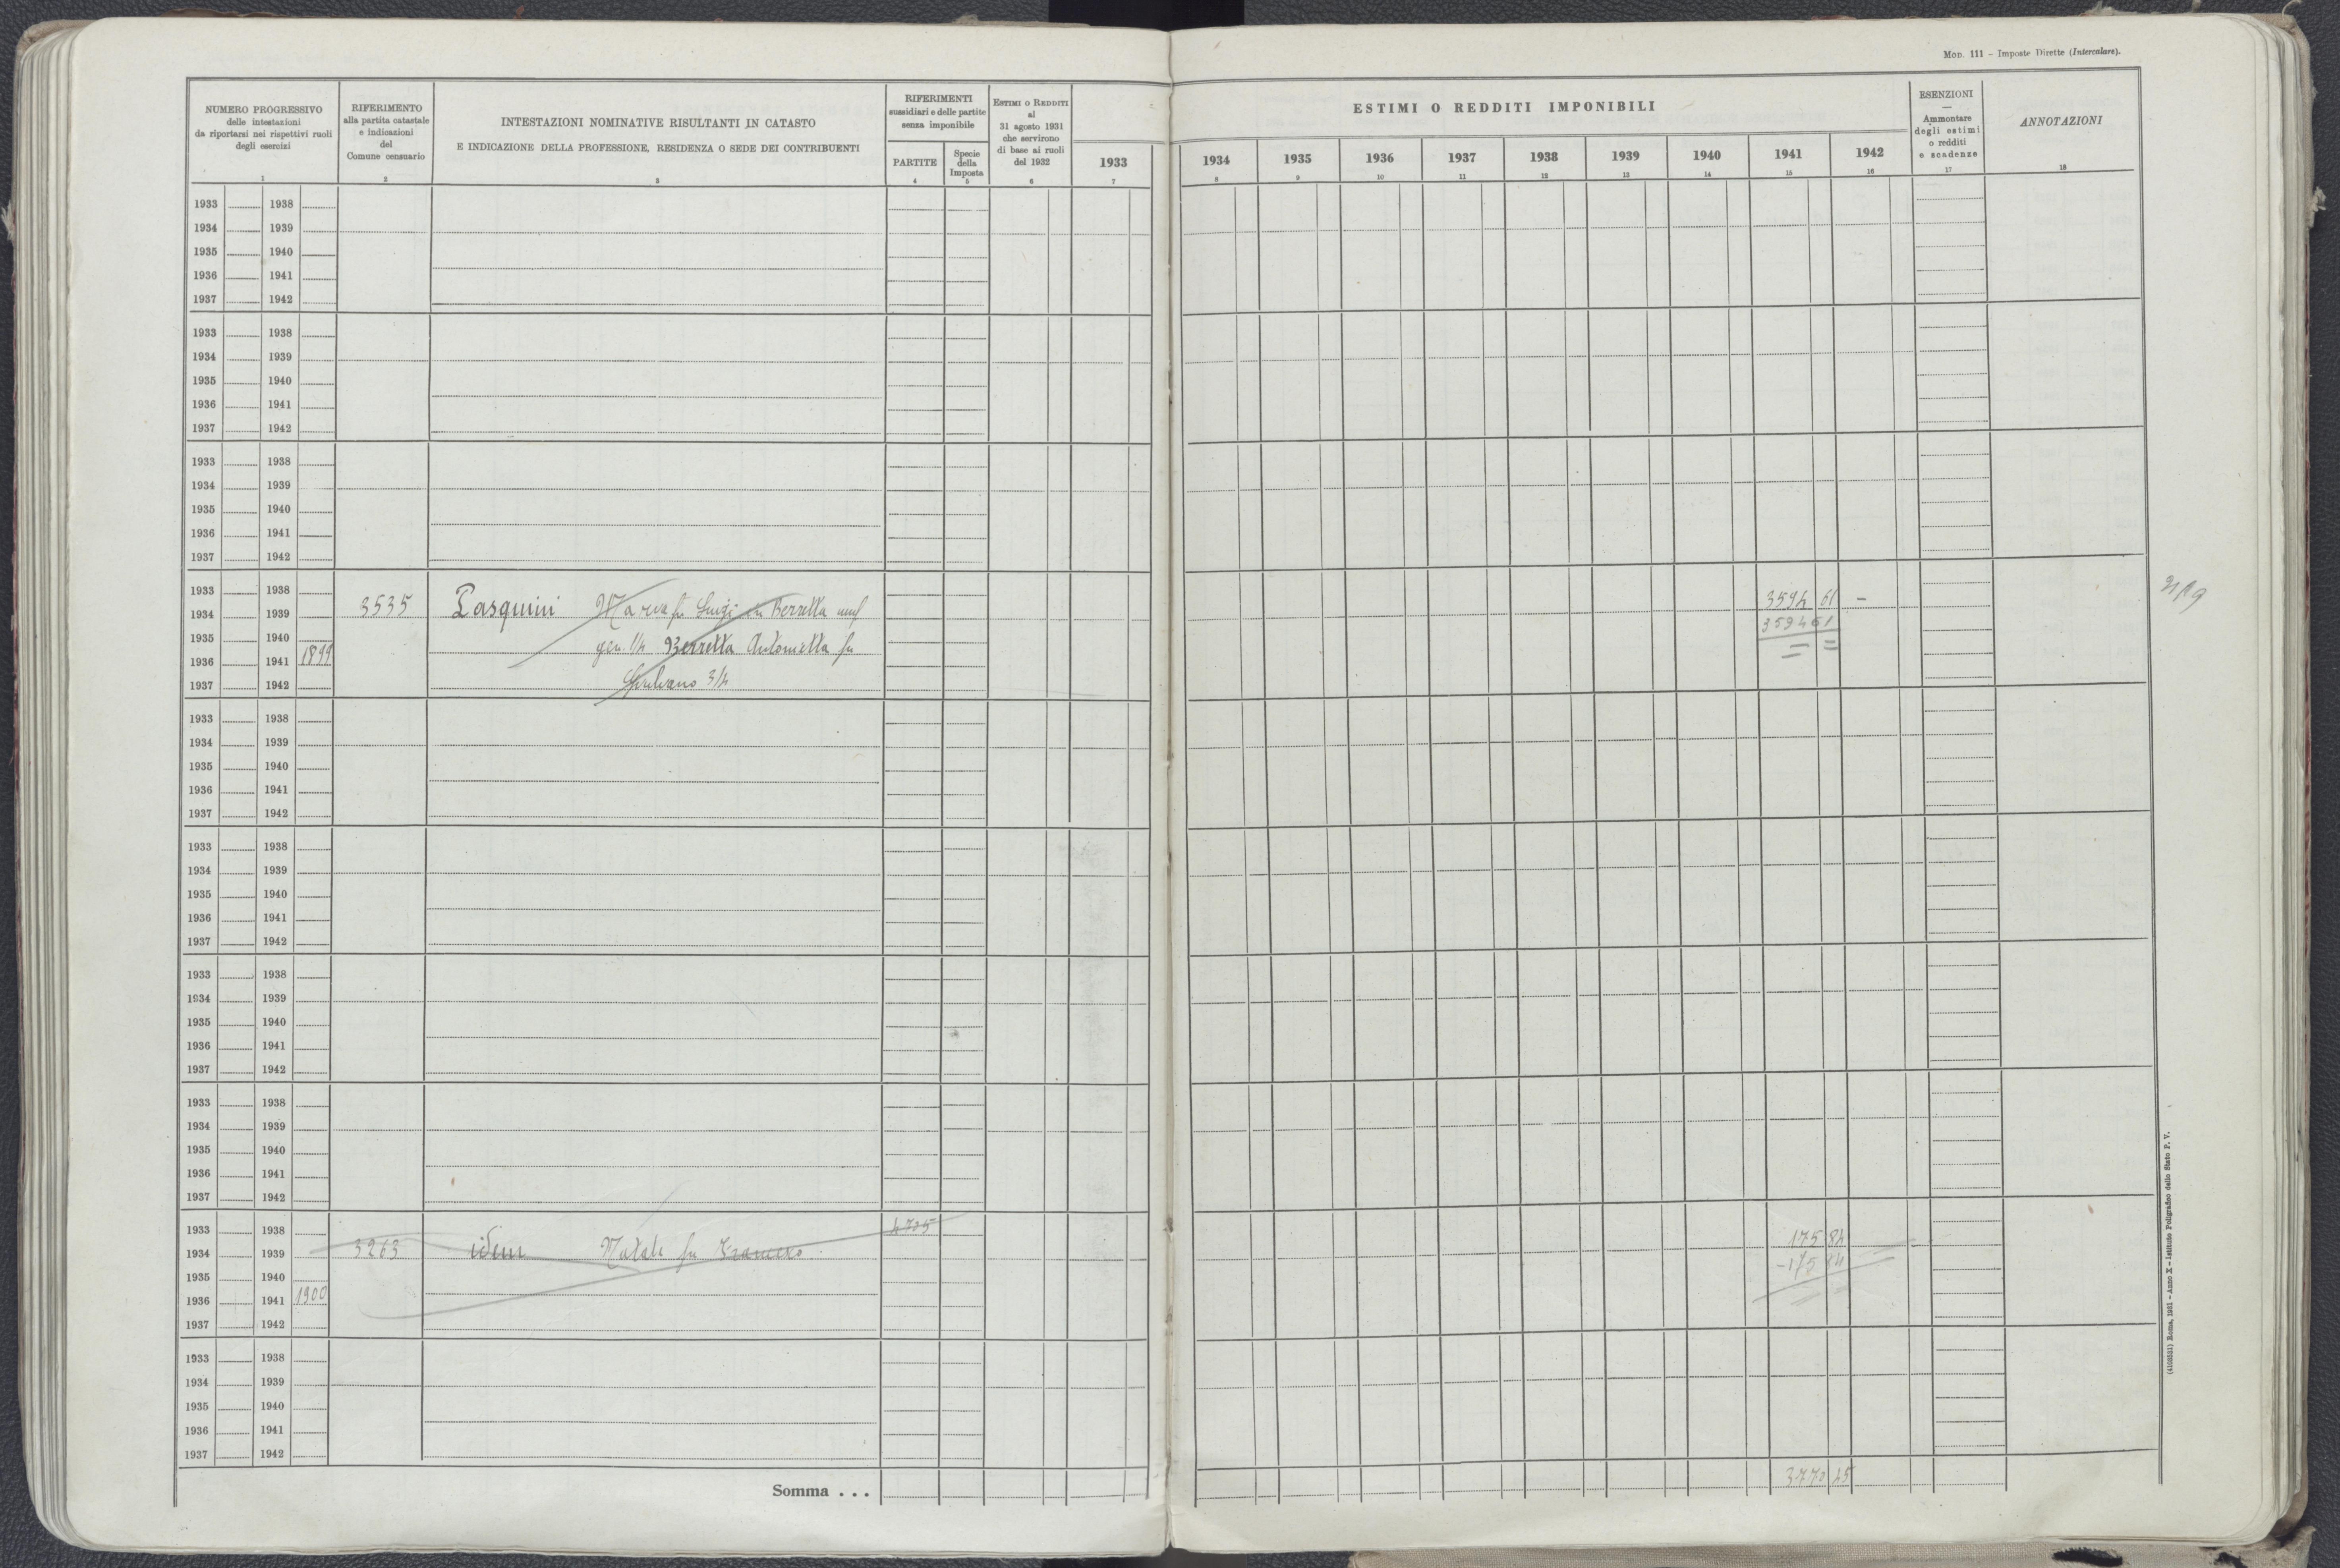 Mod. 111 - Imposte Dirette (Intercalare).
NUMERO PROGRESSIVO
delle intestazioni
da riportarsi nei rispettivi ruoli
degli esercizi
1
RIFERIMENTO
alla partita catastale
e indicazioni
del
Comune censuario
2
INTESTAZIONI NOMINATIVE RISULTANTI IN CATASTO
E INDICAZIONE DELLA PROFESSIONE, RESIDENZA O SEDE DEI CONTRIBUENTI
3
RIFERIMENTI
sussidiari e delle partite
senza imponibile
PARTITE
4
Specie
della
Imposta
5
Estimi o Redditi
al
31 agosto 1931
che servirono
di base ai ruoli
del 1932
6
1933
7
ESTIMI O REDDITI IMPONIBILI
1934 1935 1936 1937 1938 1939 1940 1941 1942
8 9 10 11 12 13 14 15 16
ESENZIONI
—
Ammontare
degli estimi
o redditi
e scadenze
17
ANNOTAZIONI
18
1933 1938
1934 1939
1935 1940
1936 1941
1937 1942
1933 1938
1934 1939
1935 1940
1936 1941
1937 1942
1933 1938
1934 1939
1935 1940
1936 1941
1937 1942
1933 1938
1934 1939 3535 Pasquini Maria fu Luigi in Berretta usuf 3594 61 -
1935 1940 3594 61
1936 1941 1899 gen. 1/4 Berretta Antonietta fu
1937 1942 3/4
1933 1938
1934 1939
1935 1940
1936 1941
1937 1942
1933 1938
1934 1939
1935 1940
1936 1941
1937 1942
1933 1938
1934 1939
1935 1940
1936 1941
1937 1942
1933 1938
1934 1939
1935 1940
1936 1941
1937 1942
1933 1938 4725
1934 1939 3263 idem Natale fu Francesco 175 84
1935 1940
1936 1941 1900
1937 1942
1933 1938
1934 1939
1935 1940
1936 1941
1937 1942
Somma . . . 3770 45
(4103531) Roma, 1931 - Anno X - Istituto Poligrafico dello Stato P. V.